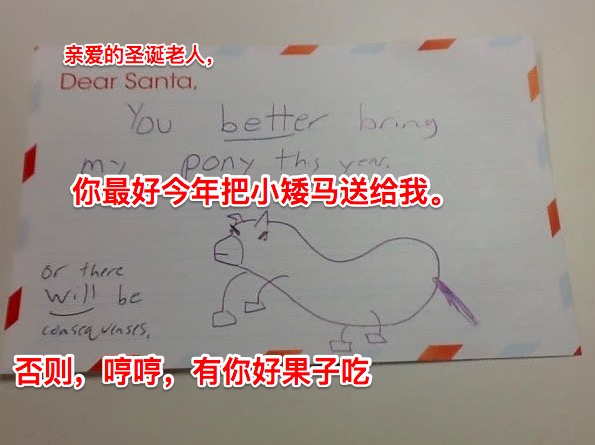 亲爱的圣诞老人，
Dear Santa,
You better bring
my pony this year.
你最好今年把小矮马送给我。
or there
will be
consequenses.
否则，哼哼，有你好果子吃